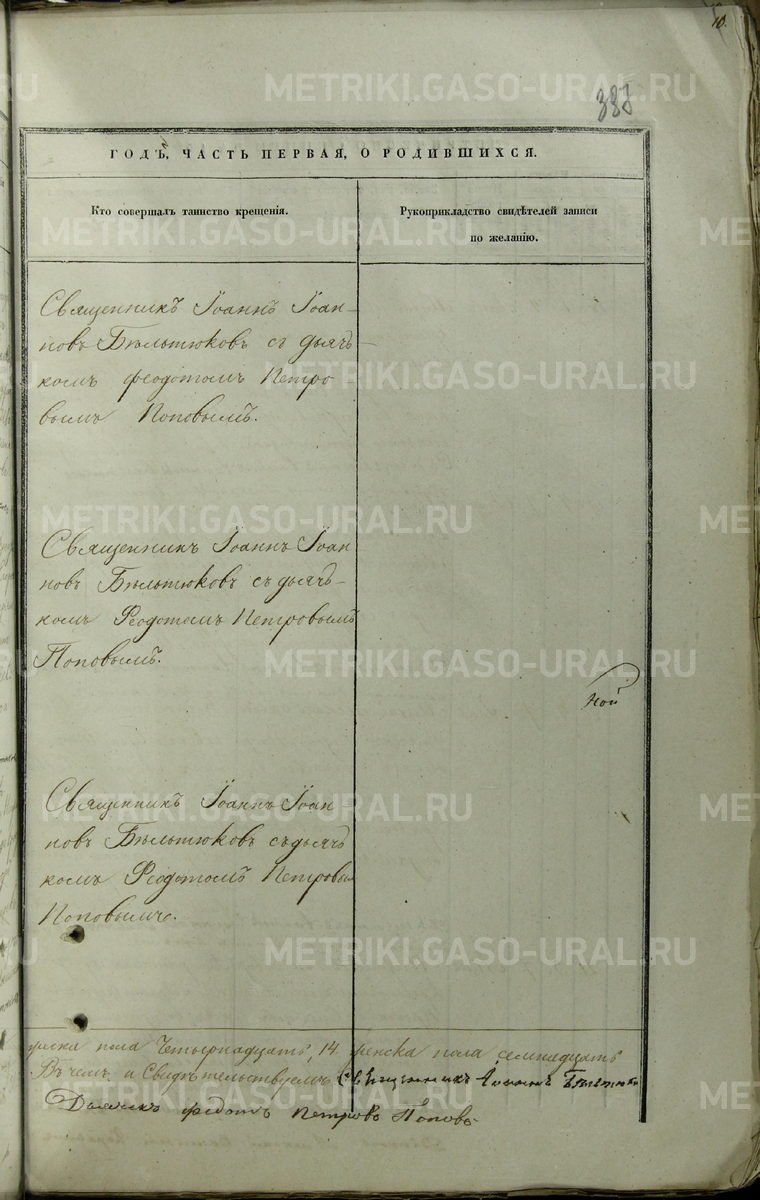 10.
387
ГОДЪ, ЧАСТЬ ПЕРВАЯ, О РОДИВШИХСЯ.
Кто совершалъ таинство крещенія.
Рукоприкладство свидѣтелей записи
по желанію.
Священникъ Іоаннъ Іоан-
новъ Бѣльтюковъ съ дьячь-
комъ Феодотомъ Петро-
вымъ Поповымъ.
Священникъ Іоаннъ Іоан
новъ Бѣльтюковъ съ дьячь-
комъ Феодотомъ Петровымъ
Поповымъ.
ной
Священникъ Іоаннъ Іоан-
новъ Бѣльтюковъ съ дьячь
комъ Феодотомъ Петровым
Поповымъ.
пола Четырнадцать, 14 женска пола семнадцать
Въ чемъ и Свидѣтельствуемъ Священникъ Іоаннъ
Дьячекъ Федотъ Петровъ Поповъ
METRIKI.GASO-URAL.RU